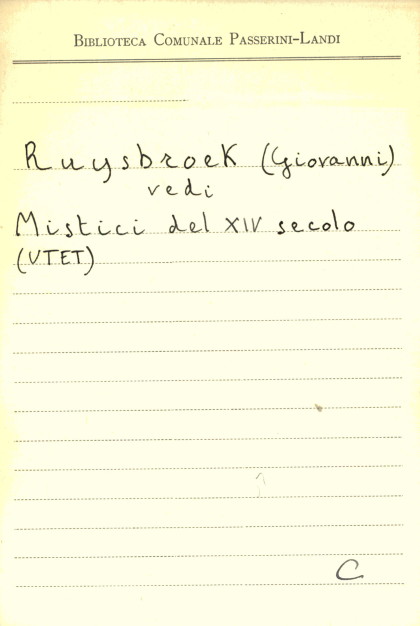 BIBLIOTECA COMUNALE PASSERINI-LANDI
Ruysbroek (Giovanni)
vedi
Mistici del XIV secolo
(UTET)
C